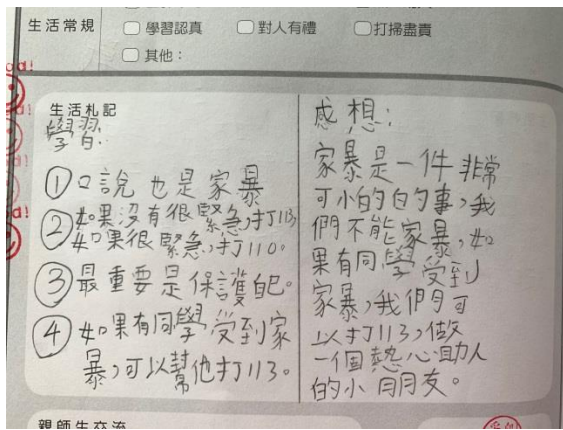 生活常規
學習認真
對人有禮
打掃盡責
其他：
生活札記
學習:
①口說也是家暴
②如果沒有很緊急，打113
如果很緊急，打110。
③最重要是保護自己。
④如果有同學受到家
暴，可以幫他打113。
感想：
家暴是一件非常
可小的白的事，我
們不能家暴，如
果有同學受到
家暴，我們可
以打113，做
一個熱心助人
的小朋友。
親師生交流